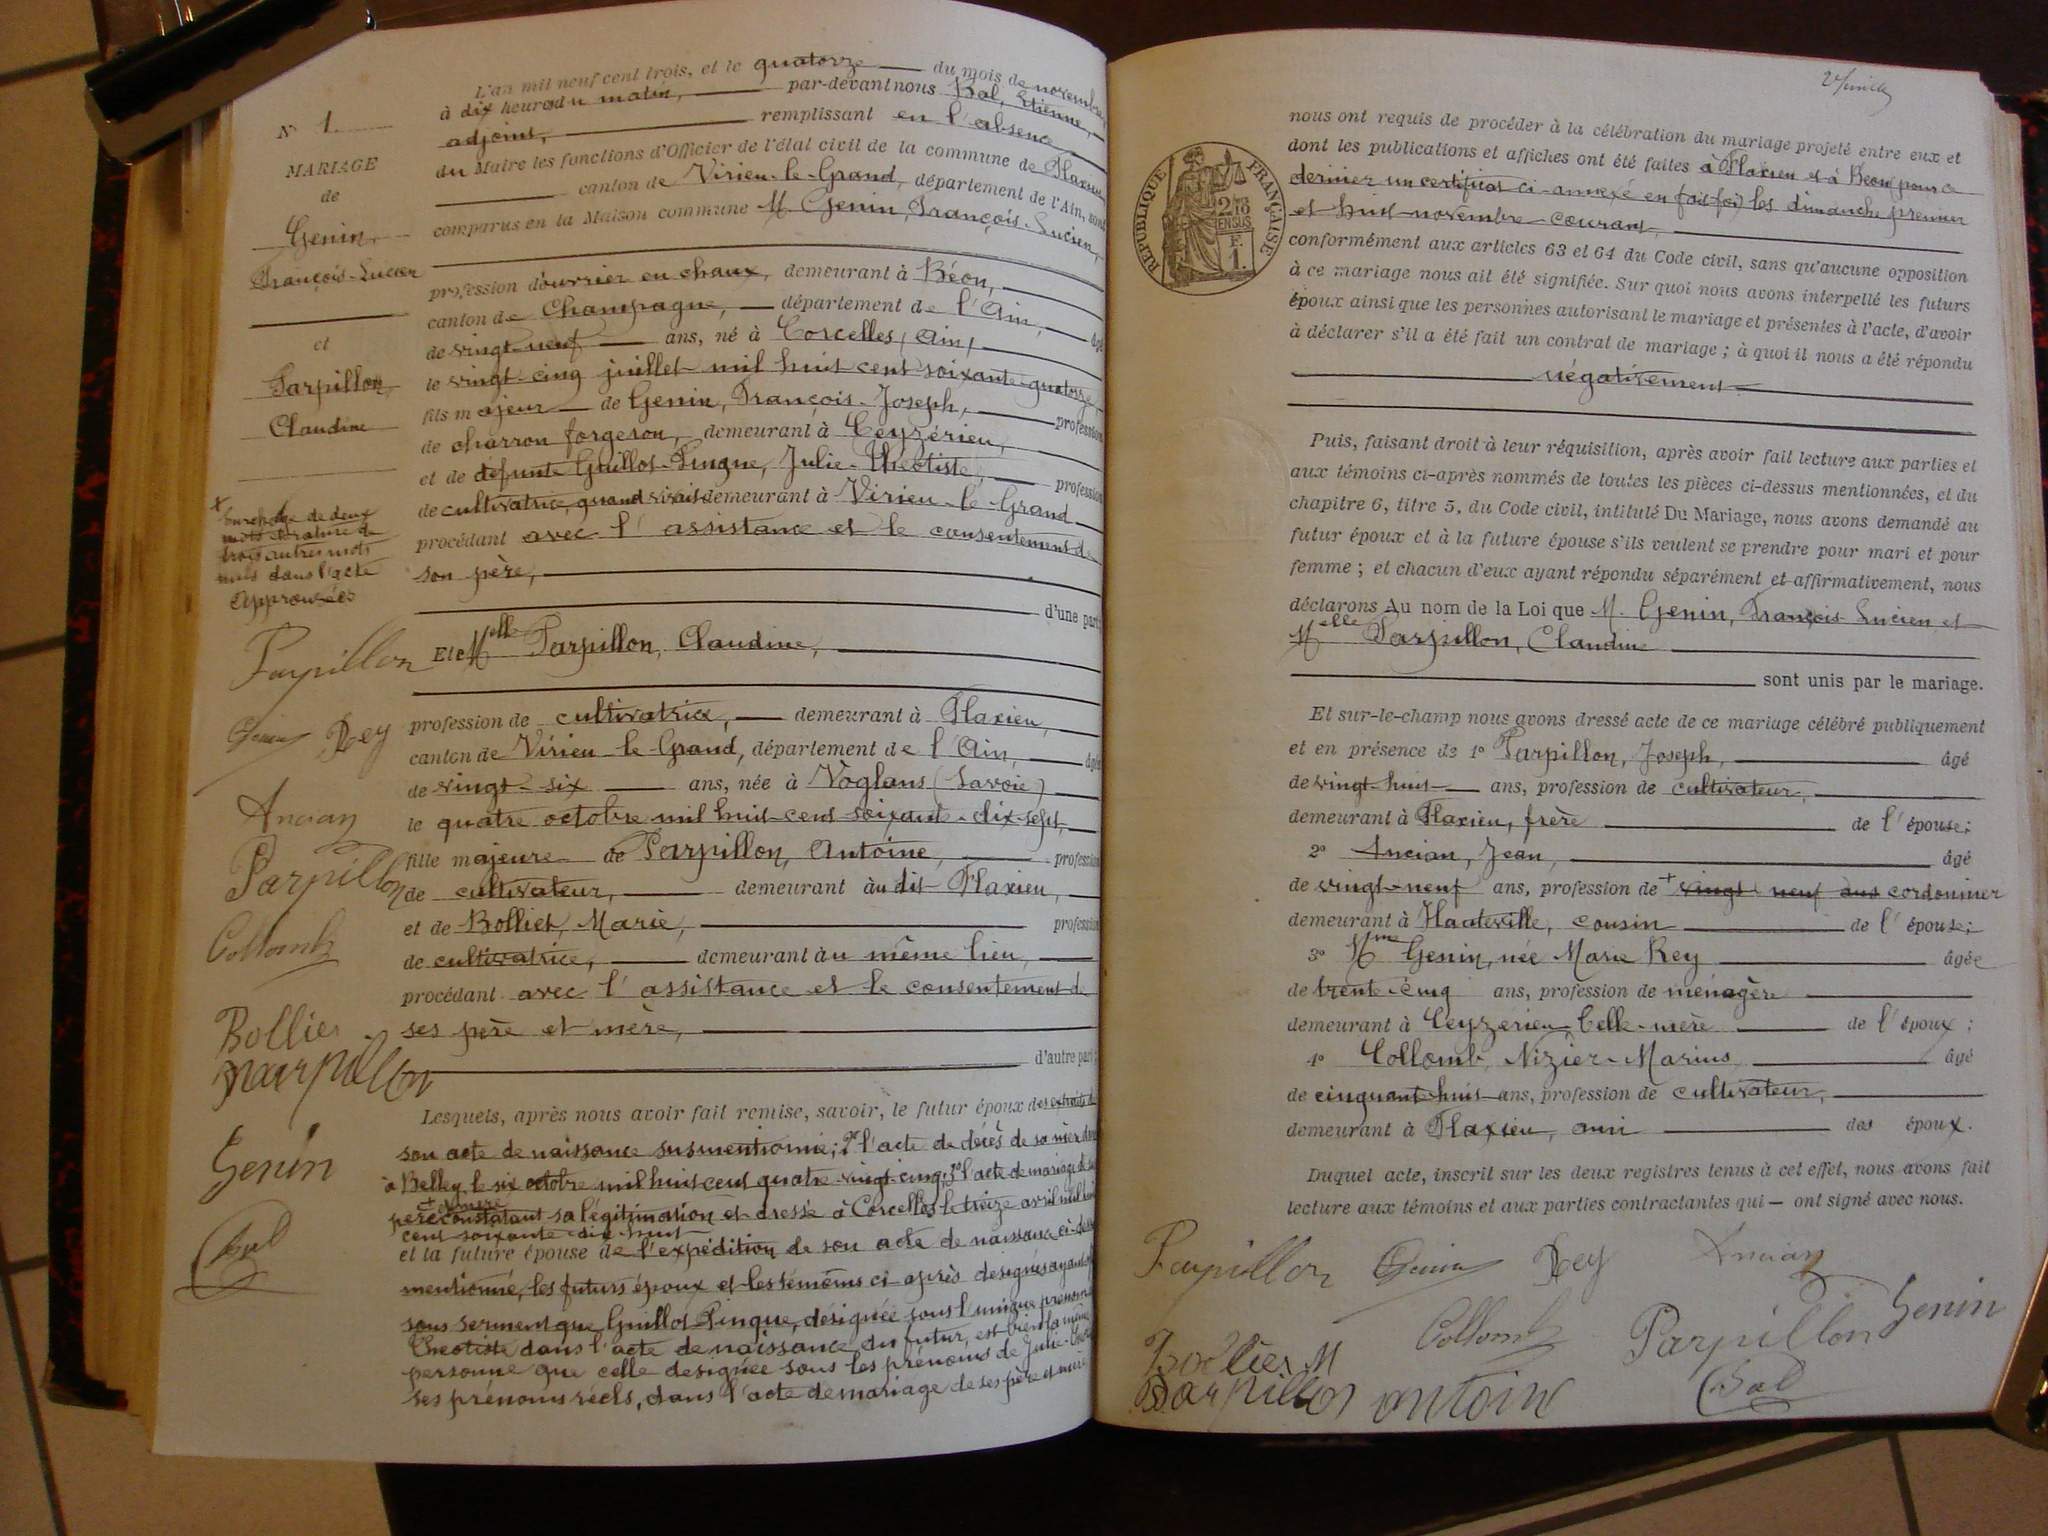 N° 1.
MARIAGE
de
Genin
François-Lucien
et
Parpillon
Claudine
+
Surcharge de deux
mots et rature de
trois autres mots
nuls dans l'acte
Approuvées
Parpillon
Genin Rey
Ancian
Parpillon
Collomb
Bollier
parpillon
Genin
Bal
L'an mil neuf cent trois, et le quatorze du mois de novembre
à dix heures du matin, par-devant nous Bal, Etienne,
adjoint, remplissant en l'absence
du Maire les fonctions d'Officier de l'état civil de la commune de Flaxieu
canton de Virieu-le-Grand, département de l'Ain, sont
comparus en la Maison commune M. Genin, François-Lucien,
profession d'ouvrier en chaux, demeurant à Béon,
canton de Champagne, département de l'Ain, âgé
de vingt-neuf ans, né à Corcelles, Ain,
le vingt-cinq juillet mil huit cent soixante-quatorze,
fils majeur de Genin, François-Joseph, profession
de charron forgeron, demeurant à Ceyzérieu,
et de défunte Guillot-Pingue, Julie-Théotiste, profession
de cultivatrice, quand vivait demeurant à Virieu-le-Grand
procédant avec l'assistance et le consentement de
son père,
d'une part;
Et Melle Parpillon, Claudine,
profession de cultivatrice, demeurant à Flaxieu,
canton de Virieu-le-Grand, département de l'Ain, âgée
de vingt-six ans, née à Voglans (Savoie)
le quatre octobre mil huit cent soixante-dix-sept,
fille majeure de Parpillon, Antoine, profession
de cultivateur, demeurant audit Flaxieu,
et de Bolliet, Marie, profession
de cultivatrice, demeurant au même lieu,
procédant avec l'assistance et le consentement de
ses père et mère,
d'autre part;
Lesquels, après nous avoir fait remise, savoir, le futur époux des extraits de
son acte de naissance susmentionné; 2° l'acte de décès de sa mère
à Belley le six octobre mil huit cent quatre-vingt-cinq; 3° l'acte de mariage de
+ et mère
père constatant sa légitimation et dressé à Corcelles le treize avril mil huit
cent soixante-dix-huit
et la future épouse de l'expédition de son acte de naissance ci-dessus
mentionné, les futurs époux et les témoins ci-après désignés ayant
sous serment que Guillot Pingue, désignée sous l'unique prénom
Théotiste dans l'acte de naissance du futur, est bien la même
personne que celle désignée sous les prénoms de Julie
ses prénoms réels, dans l'acte de mariage de ses père et mère
RÉPUBLIQUE FRANÇAISE
2/10
EN SUS
F.
1.
nous ont requis de procéder à la célébration du mariage projeté entre eux et
dont les publications et affiches ont été faites à Flaxieu et à Béon pour ce
dernier un certificat ci-annexé en fait foi) les dimanche premier
et huit novembre courant,
conformément aux articles 63 et 64 du Code civil, sans qu'aucune opposition
à ce mariage nous ait été signifiée. Sur quoi nous avons interpellé les futurs
époux ainsi que les personnes autorisant le mariage et présentes à l'acte, d'avoir
à déclarer s'il a été fait un contrat de mariage; à quoi il nous a été répondu
négativement
Puis, faisant droit à leur réquisition, après avoir fait lecture aux parties et
aux témoins ci-après nommés de toutes les pièces ci-dessus mentionnées, et du
chapitre 6, titre 5, du Code civil, intitulé Du Mariage, nous avons demandé au
futur époux et à la future épouse s'ils veulent se prendre pour mari et pour
femme; et chacun d'eux ayant répondu séparément et affirmativement, nous
déclarons Au nom de la Loi que M. Genin, François Lucien et
Melle Parpillon, Claudine
sont unis par le mariage.
Et sur-le-champ nous avons dressé acte de ce mariage célébré publiquement
et en présence de 1° Parpillon, Joseph, âgé
de vingt-huit ans, profession de cultivateur,
demeurant à Flaxieu, frère de l'épouse;
2° Ancian, Jean, âgé
de vingt-neuf ans, profession de + vingt neuf ans cordonnier
demeurant à Hauteville, cousin de l'épouse;
3° Mme Genin, née Marie Rey âgée
de trente-cinq ans, profession de ménagère
demeurant à Ceyzérieu, belle-mère de l'époux;
4° Collomb, Nizier-Marius âgé
de cinquante-huit ans, profession de cultivateur,
demeurant à Flaxieu, ami des époux.
Duquel acte, inscrit sur les deux registres tenus à cet effet, nous avons fait
lecture aux témoins et aux parties contractantes qui — ont signé avec nous.
Parpillon Genin Rey Ancian
Collomb Parpillon Genin
Bollier M
Parpillon antoine Bal